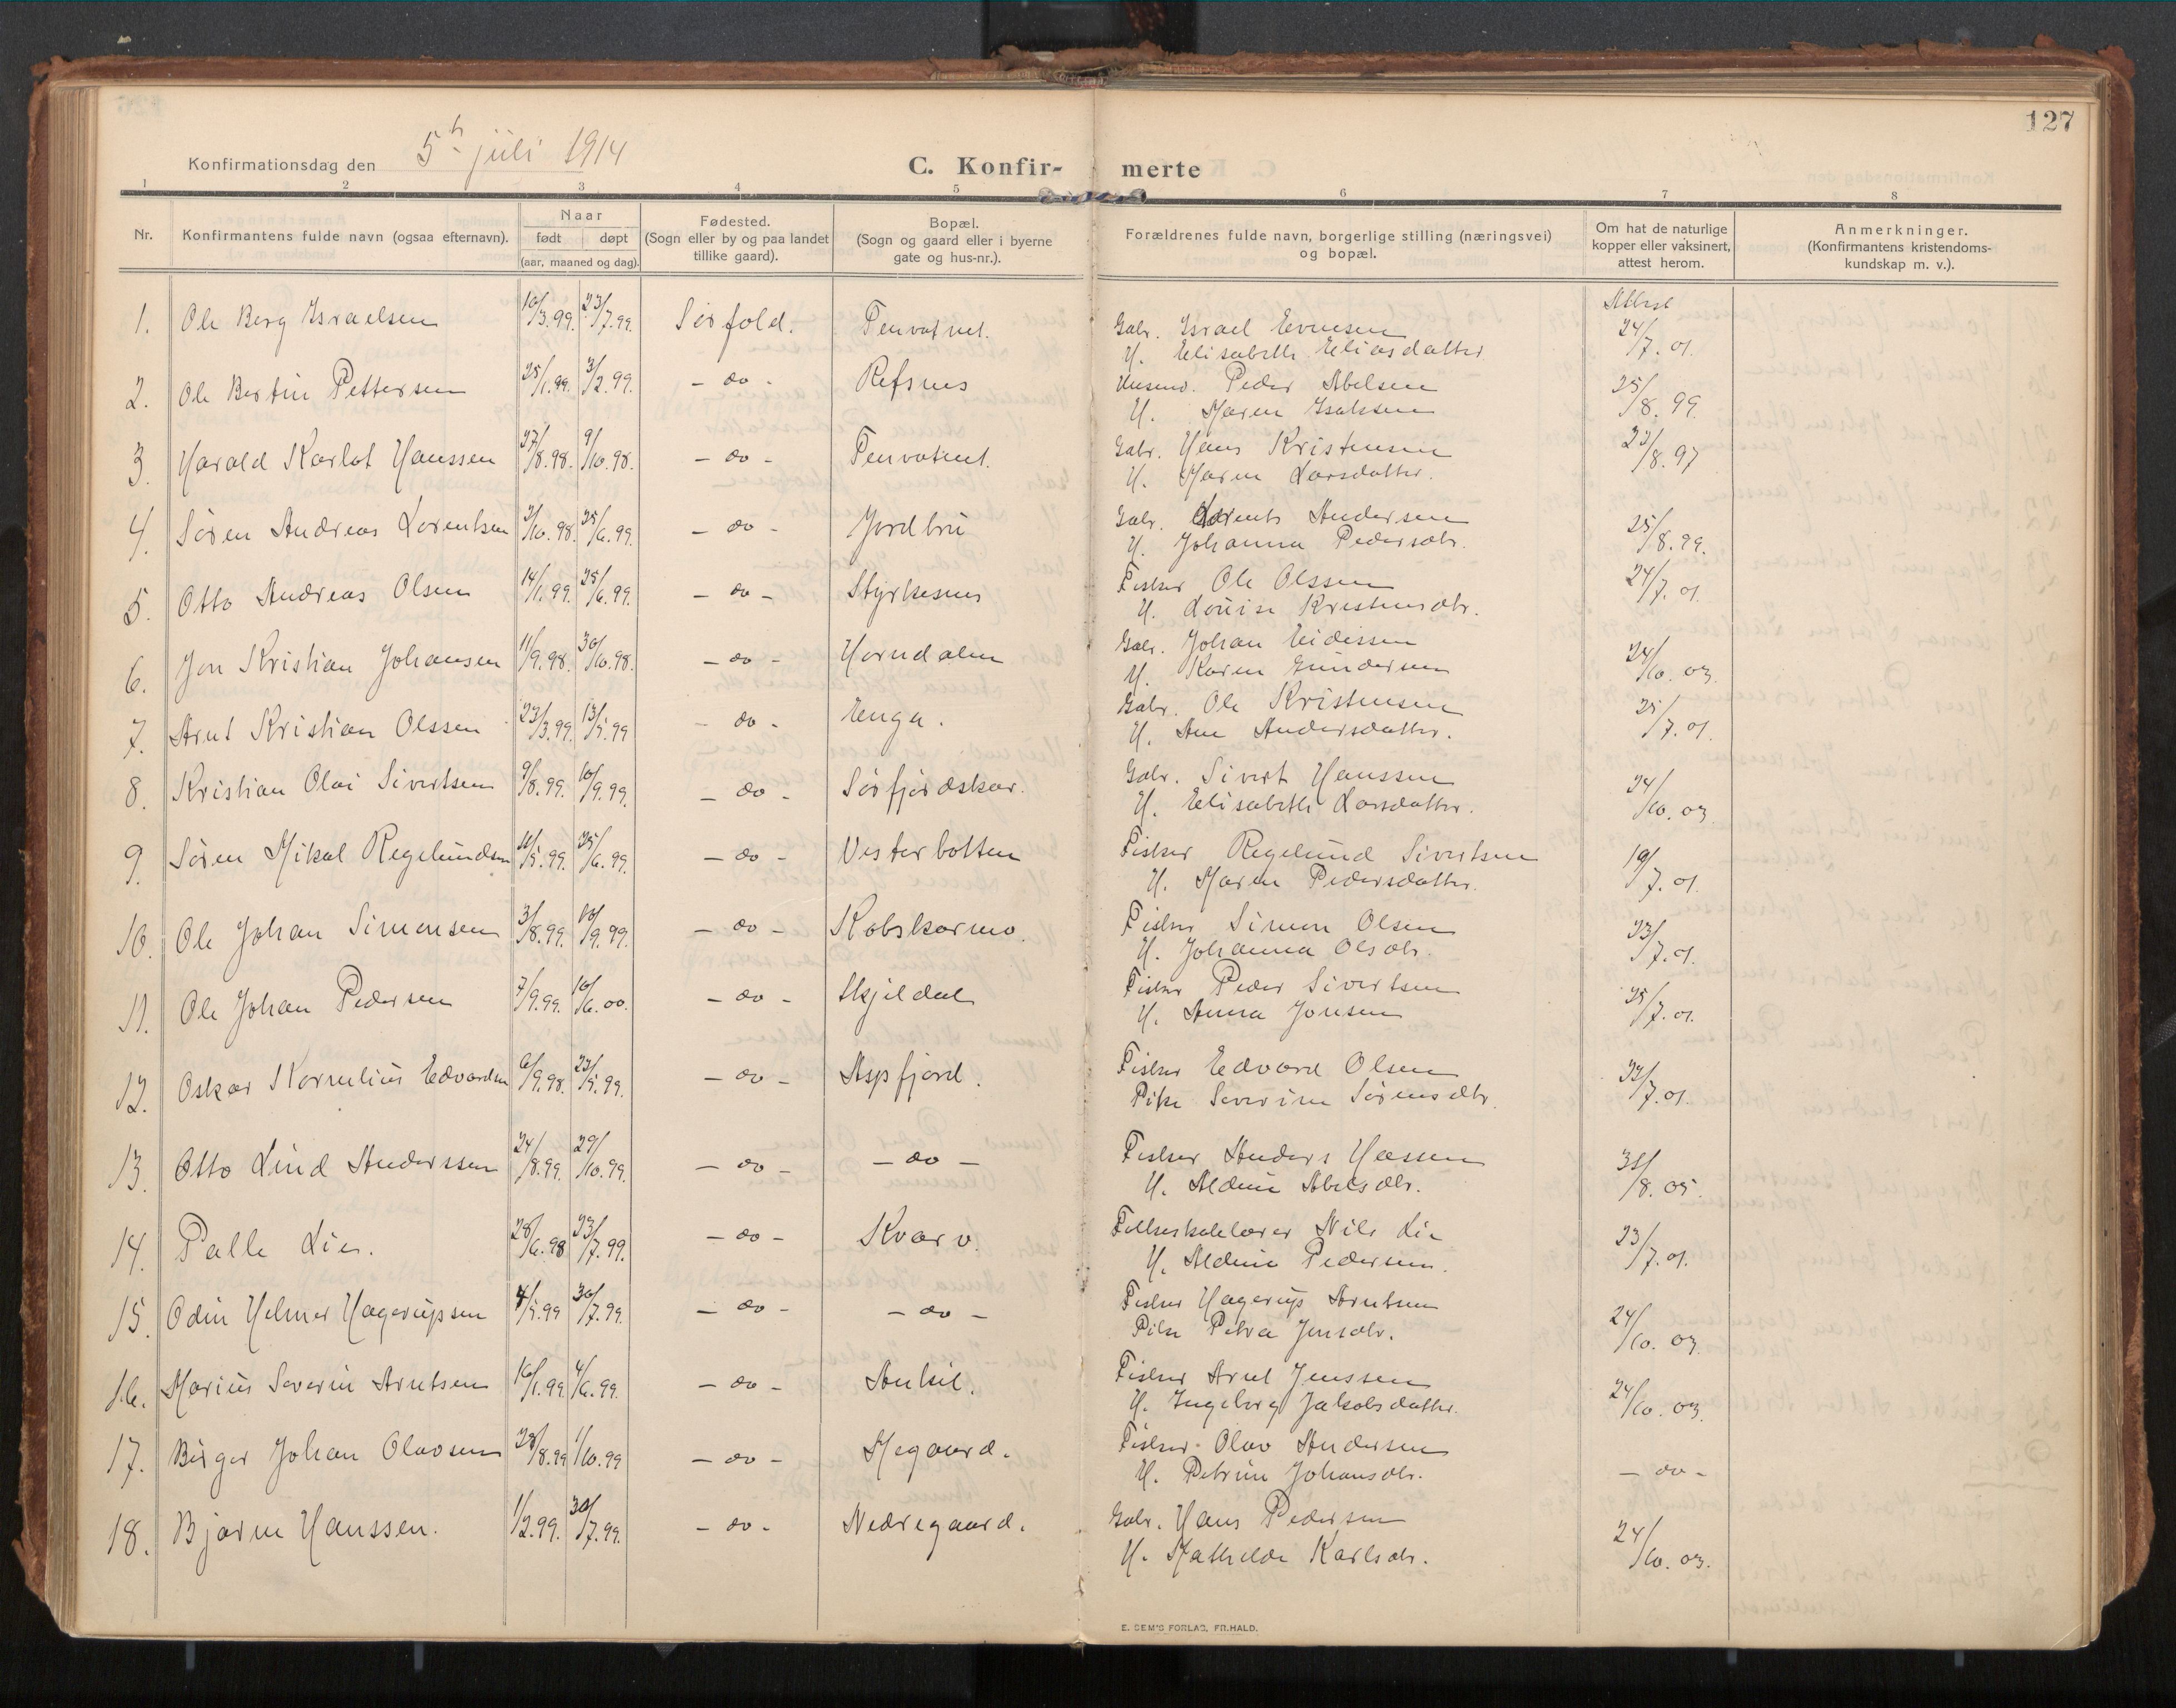 127
Konfirmationsdag den 5te juli 1914
C. Konfir- merte
1 2 3 4 5 6 7 8
Nr. Konfirmantens fulde navn (ogsaa efternavn). Naar født døpt (aar, maaned og dag). Fødested. (Sogn eller by og paa landet tillike gaard). Bopæl. (Sogn og gaard eller i byerne gate og hus-nr.). Forældrenes fulde navn, borgerlige stilling (næringsvei) og bopæl. Om hat de naturlige kopper eller vaksinert, attest herom. Anmerkninger. (Konfirmantens kristendoms- kundskap m. v.).
1. Ole Berg Israelsen 10/3.99. 23/7.99. Sørfold. Tenvatnet. Gbr. Israel Evensen Attest 24/7.01.
H. Elisabeth Eliasdatter
2. Ole Bertin Pettersen 25/1.99. 3/2.99. - do - Refsnes Husm. Peder Abelsen 25/8.99.
H. Maren Isaksen
3. Harald Karlot Hanssen 27/8.98. 9/10.98. - do - Tenvatnet. Gbr. Hans Kristensen 23/8.97
H. Maren Larsdatter.
4. Søren Andreas Lorentsen 2/10.98. 25/6.99. - do - Jordbru Gbr. Lorents Andersen 25/8.99.
H. Johanna Pedersdtr.
5. Otto Andreas Olsen 14/1.99. 25/6.99. - do - Styrkesnes Fisker Ole Olssen 24/7.01.
H. Lovise Kristensdtr.
6. Jon Kristian Johansen 11/9.98. 30/10.98. - do - Horndalen Gbr. Johan Eidissen 24/10.03.
H. Karen Gundersen
7. Arnt Kristian Olssen 23/3.99. 13/5.99 - do - Enga. Gbr. Ole Kristensen 25/7.01.
H. Ane Andersdatter.
8. Kristian Olai Sivertsen 9/8.99. 10/9.99. - do - Sørfjordskar. Gbr. Sivert Hanssen 24/10.03.
H. Elisabeth Larsdatter.
9. Søren Mikal Regelundsen 11/5.99. 25/6.99. - do - Vesterbotten Fisker Regelund Sivertsen 19/7.01.
H. Maren Pedersdatter.
10. Ole Johan Simonsen 3/8.99. 10/9.99. - do - Kobskarmo. Fisker Simon Olsen 23/7.01.
H. Johanna Olsdtr.
11. Ole Johan Pedersen 7/9.99. 10/6.00. - do - Skjeldal Fisker Peder Sivertsen 25/7.01.
H. Anna Jonsen
12. Oskar Kornelius Edvardsen 6/9.98. 23/5.99. - do - Aspfjord. Fisker Edvard Olsen 22/7.01.
Pike Severine Sørensdtr.
13. Otto Lind Anderssen 24/8.99. 29/10.99. - do - - do - Fisker Anders Hassen 31/8.05.
H. Aldine Abelsdtr.
14. Palle Lie. 28/6.98 23/7.99. - do - Kvarv. Folkeskolelærer Nils Lie 23/7.01.
H. Aldine Pedersen.
15. Odin Helmer Hagerupsen 4/5.99 30/7.99. - do - - do - Fisker Hagerup Arntsen 24/10.03.
Pike Petra Jensdtr.
16. Marius Severin Arntsen 16/1.99. 4/6.99. - do - Ankil. Fisker Arnt Jenssen 24/10.03.
H. Ingeborg Jakobsdatter.
17. Birger Johan Olavsen 28/8.99 1/10.99 - do - Megaard. Fisker Olav Andersen - do -
H. Petrine Johansdtr.
18. Bjarne Hanssen. 1/2.99. 30/7.99. - do - Nedregaard. Gbr. Hans Pedersen 24/10.03.
H. Mathilde Karlsdtr.
E. SEM'S FORLAG, FR.HALD.